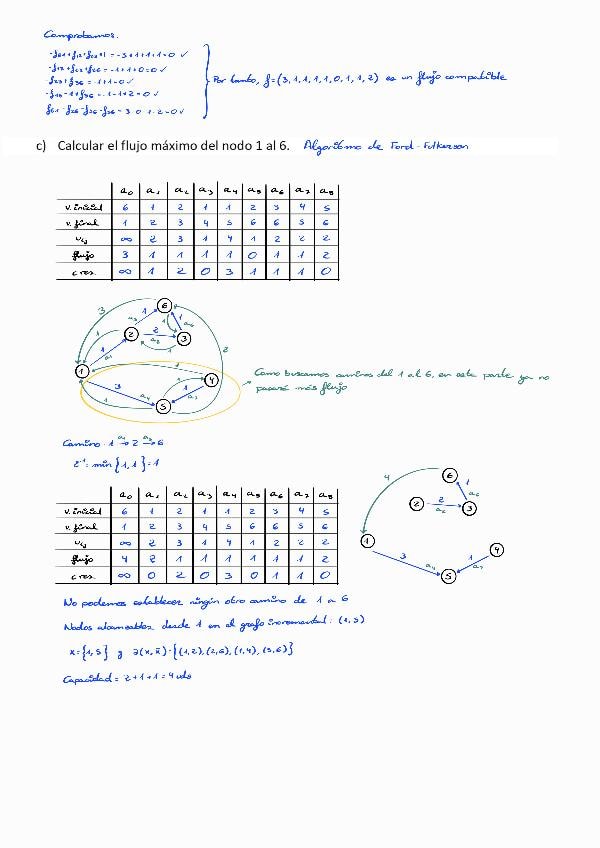 Comprobamos.
-f61+f12+f13+1 = -3+1+1+1=0 ✓
-f12+f23+f26 = -1+1+0=0 ✓
-f23+f36 = -1+1=0 ✓
f61-f26-f56-f36 = 3-0-1-2=0 ✓
Por tanto, f=(3,1,1,1,1,0,1,1,2) es un flujo compatible
c) Calcular el flujo máximo del nodo 1 al 6. Algoritmo de Ford-Fulkerson
a0 a1 a2 a3 a4 a5 a6 a7 a8
v. inicial 6 1 2 1 1 2 3 4 5
v. final 1 2 3 4 5 6 6 5 6
uij ∞ 2 3 1 4 1 2 2 2
flujo 3 1 1 1 1 0 1 1 2
c res. ∞ 1 2 0 3 1 1 1 0
3 1 6 1 1 a6
1 2 2 3
1 a1 a2 1
2
1 3 1 4
1 a4 1 a7
5
Como buscamos caminos del 1 al 6, en este parte ya no
pasará más flujo
Camino 1 a1→ 2 a5→ 6
ε¹ = min {1,1} = 1
a0 a1 a2 a3 a4 a5 a6 a7 a8
v. inicial 6 1 2 1 1 2 3 4 5
v. final 1 2 3 4 5 6 6 5 6
uij ∞ 2 3 1 4 1 2 2 2
flujo 4 2 1 1 1 1 1 1 2
c res. ∞ 0 2 0 3 0 1 1 0
4 6 1
2 2 3 a6
a2
1 3 4
a4 1 a7
5
No podemos establecer ningún otro camino de 1 a 6
Nodos alcanzables desde 1 en el grafo incremental: (1,5)
x={1,5} y ∂(x,x̄)={(1,2),(2,6),(1,4),(5,6)}
Capacidad = 2+1+1=4 uds